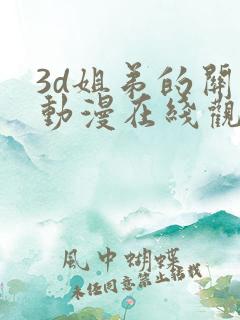 3d姐弟的關
動漫在綫觀
風中蝴蝶
未经同意禁止转载